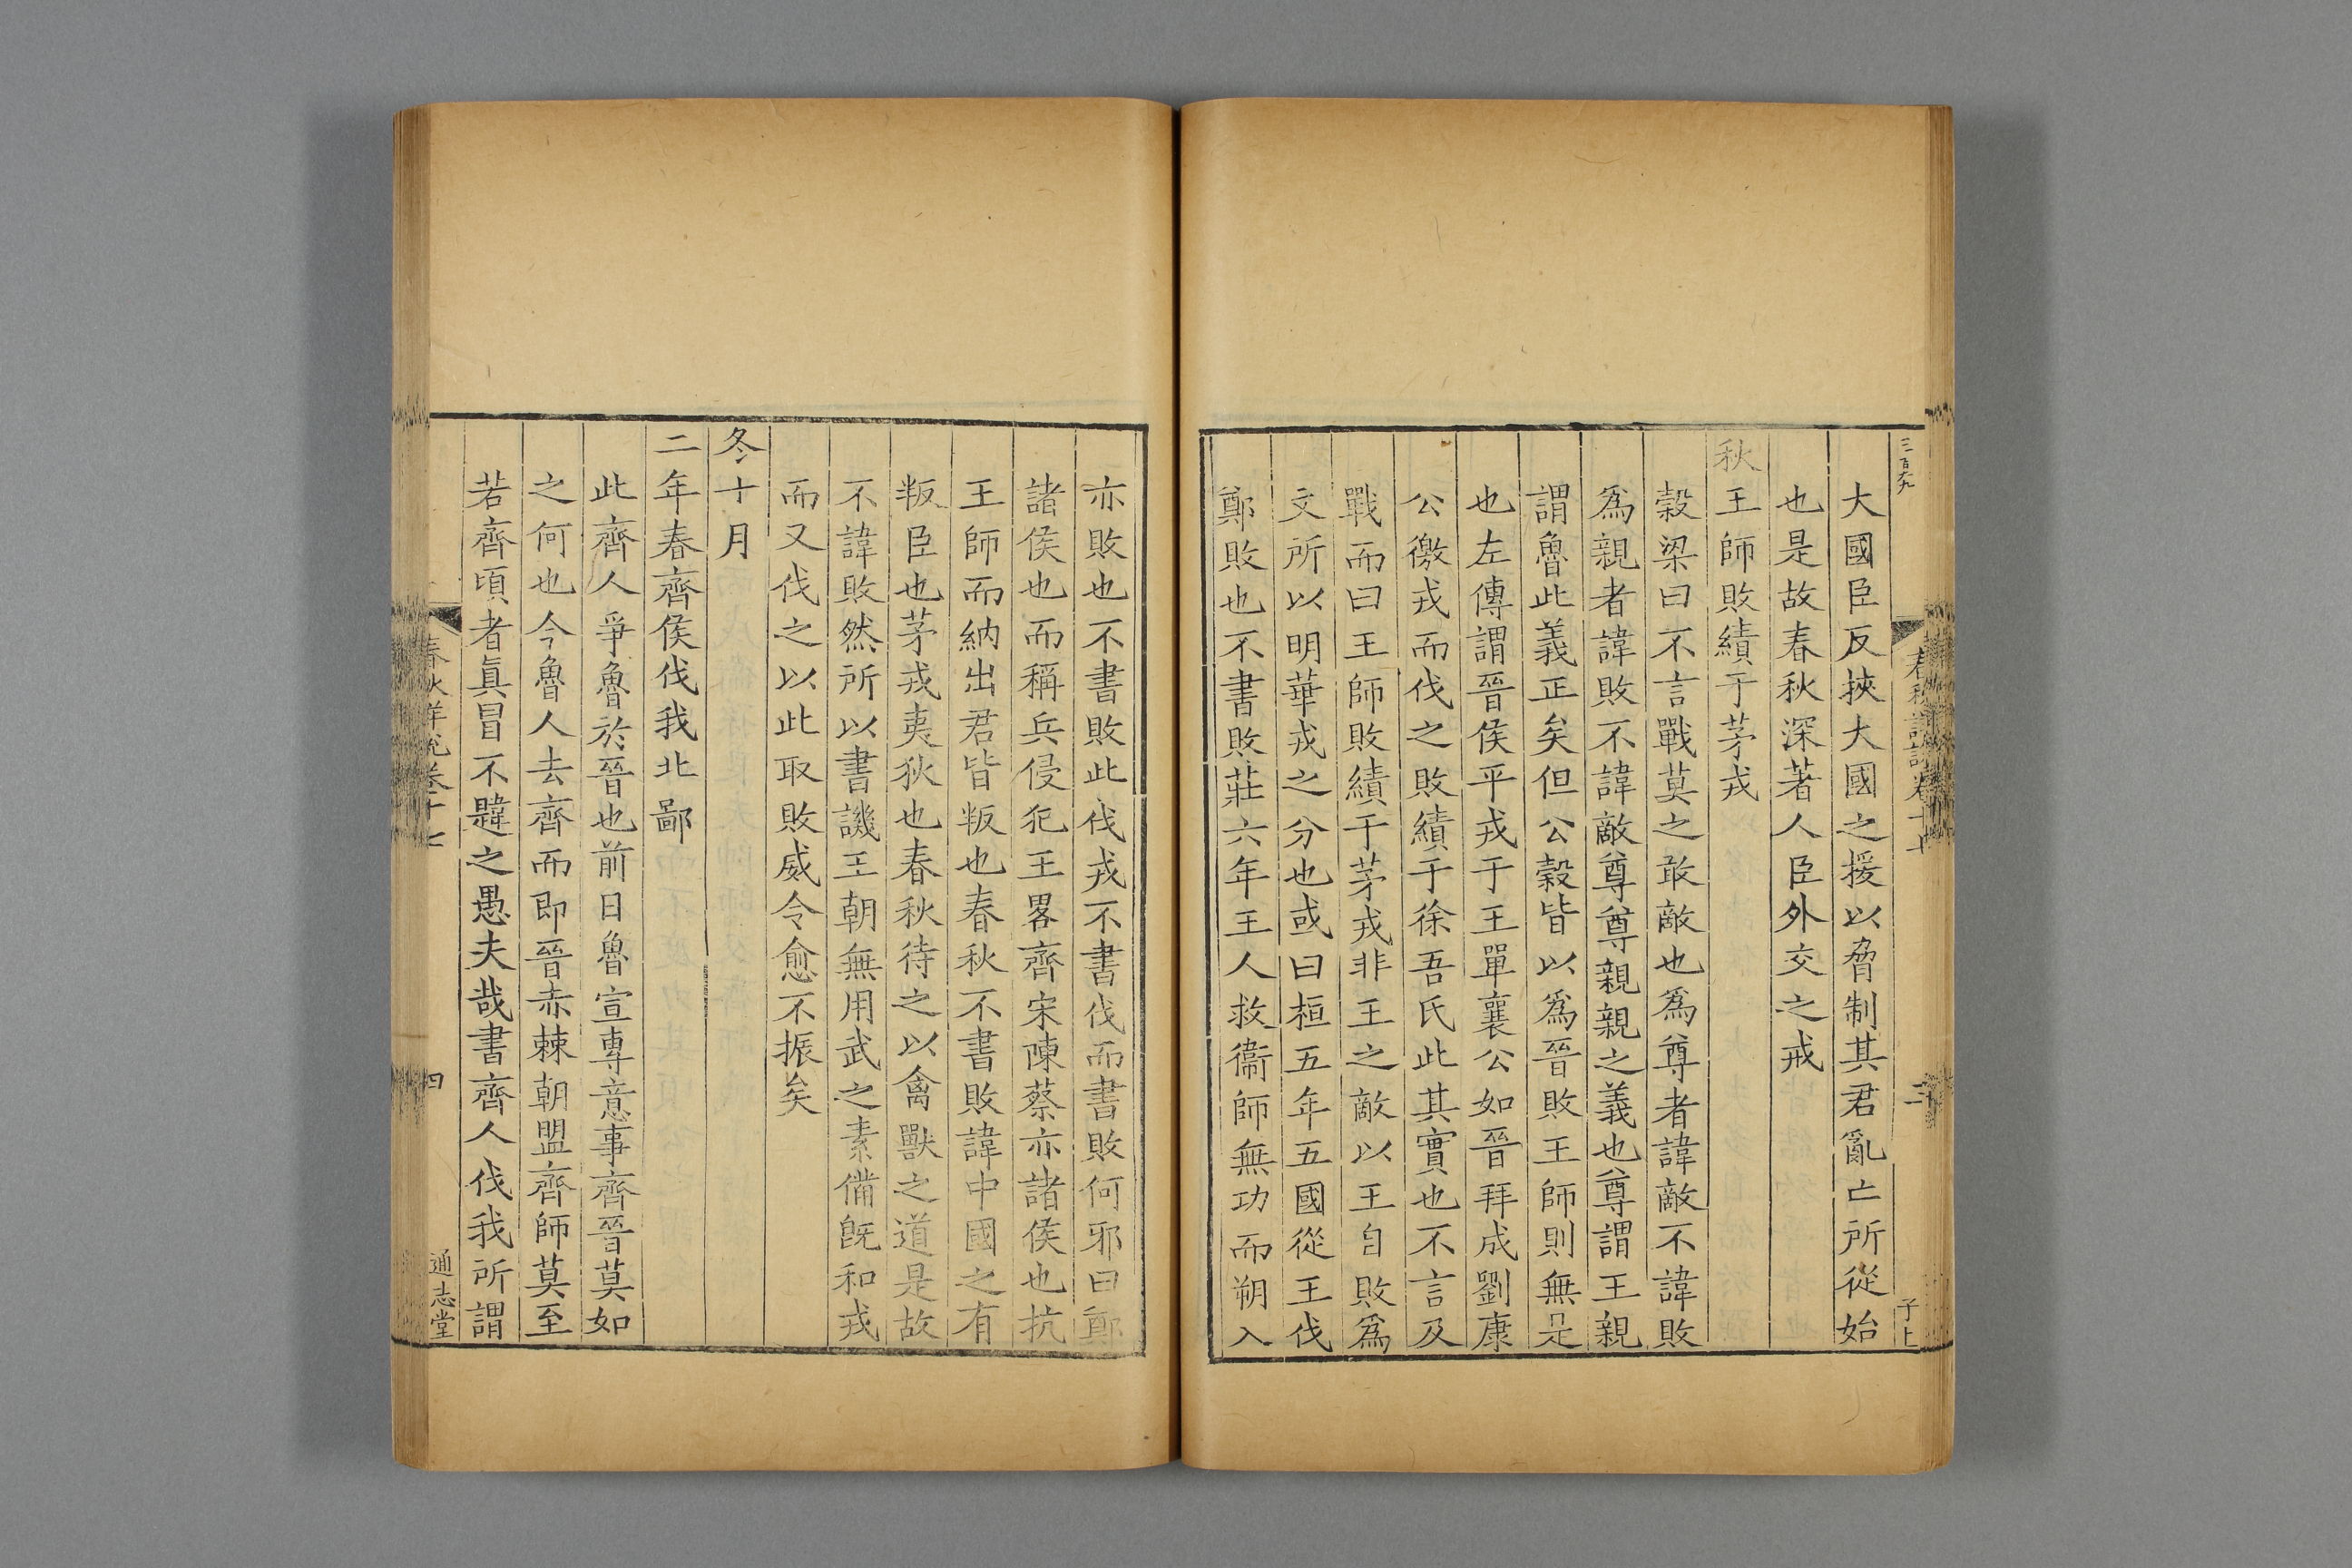 大國臣反挾大國之援以脅制其君亂亡所從始
也是故春秋深著人臣外交之戒
秋王師敗績于茅戎
穀梁曰不言戰莫之敢敵也爲尊者諱敵不諱敗
爲親者諱敗不諱敵尊尊親親之義也尊謂王親
謂魯此義正矣但公穀皆以爲晉敗王師則無是
也左傳謂晉侯平戎于王單襄公如晉拜成劉康
公徼戎而伐之敗績于徐吾氏此其實也不言及
戰而曰王師敗績于茅戎非王之敵以王自敗爲
文所以明華戎之分也或曰桓五年五國從王伐
鄭敗也不書敗莊六年王人救衞師無功而朔入
亦敗也不書敗此伐戎不書伐而書敗何邪曰鄭
諸侯也而稱兵侵犯王畧齊宋陳蔡亦諸侯也抗
王師而納出君皆叛也春秋不書敗諱中國之有
叛臣也茅戎夷狄也春秋待之以禽獸之道是故
不諱敗然所以書譏王朝無用武之素備旣和戎
而又伐之以此取敗威令愈不振矣
冬十月
二年春齊侯伐我北鄙
此齊人爭魯於晉也前日魯宣專意事齊晉莫如
之何也今魯人去齊而即晉赤棘朝盟齊師莫至
若齊頃者眞冒不韙之愚夫哉書齊人伐我所謂
三百六九
春秋詳說卷十七
三
子上
春秋詳說卷十七
四
通志堂